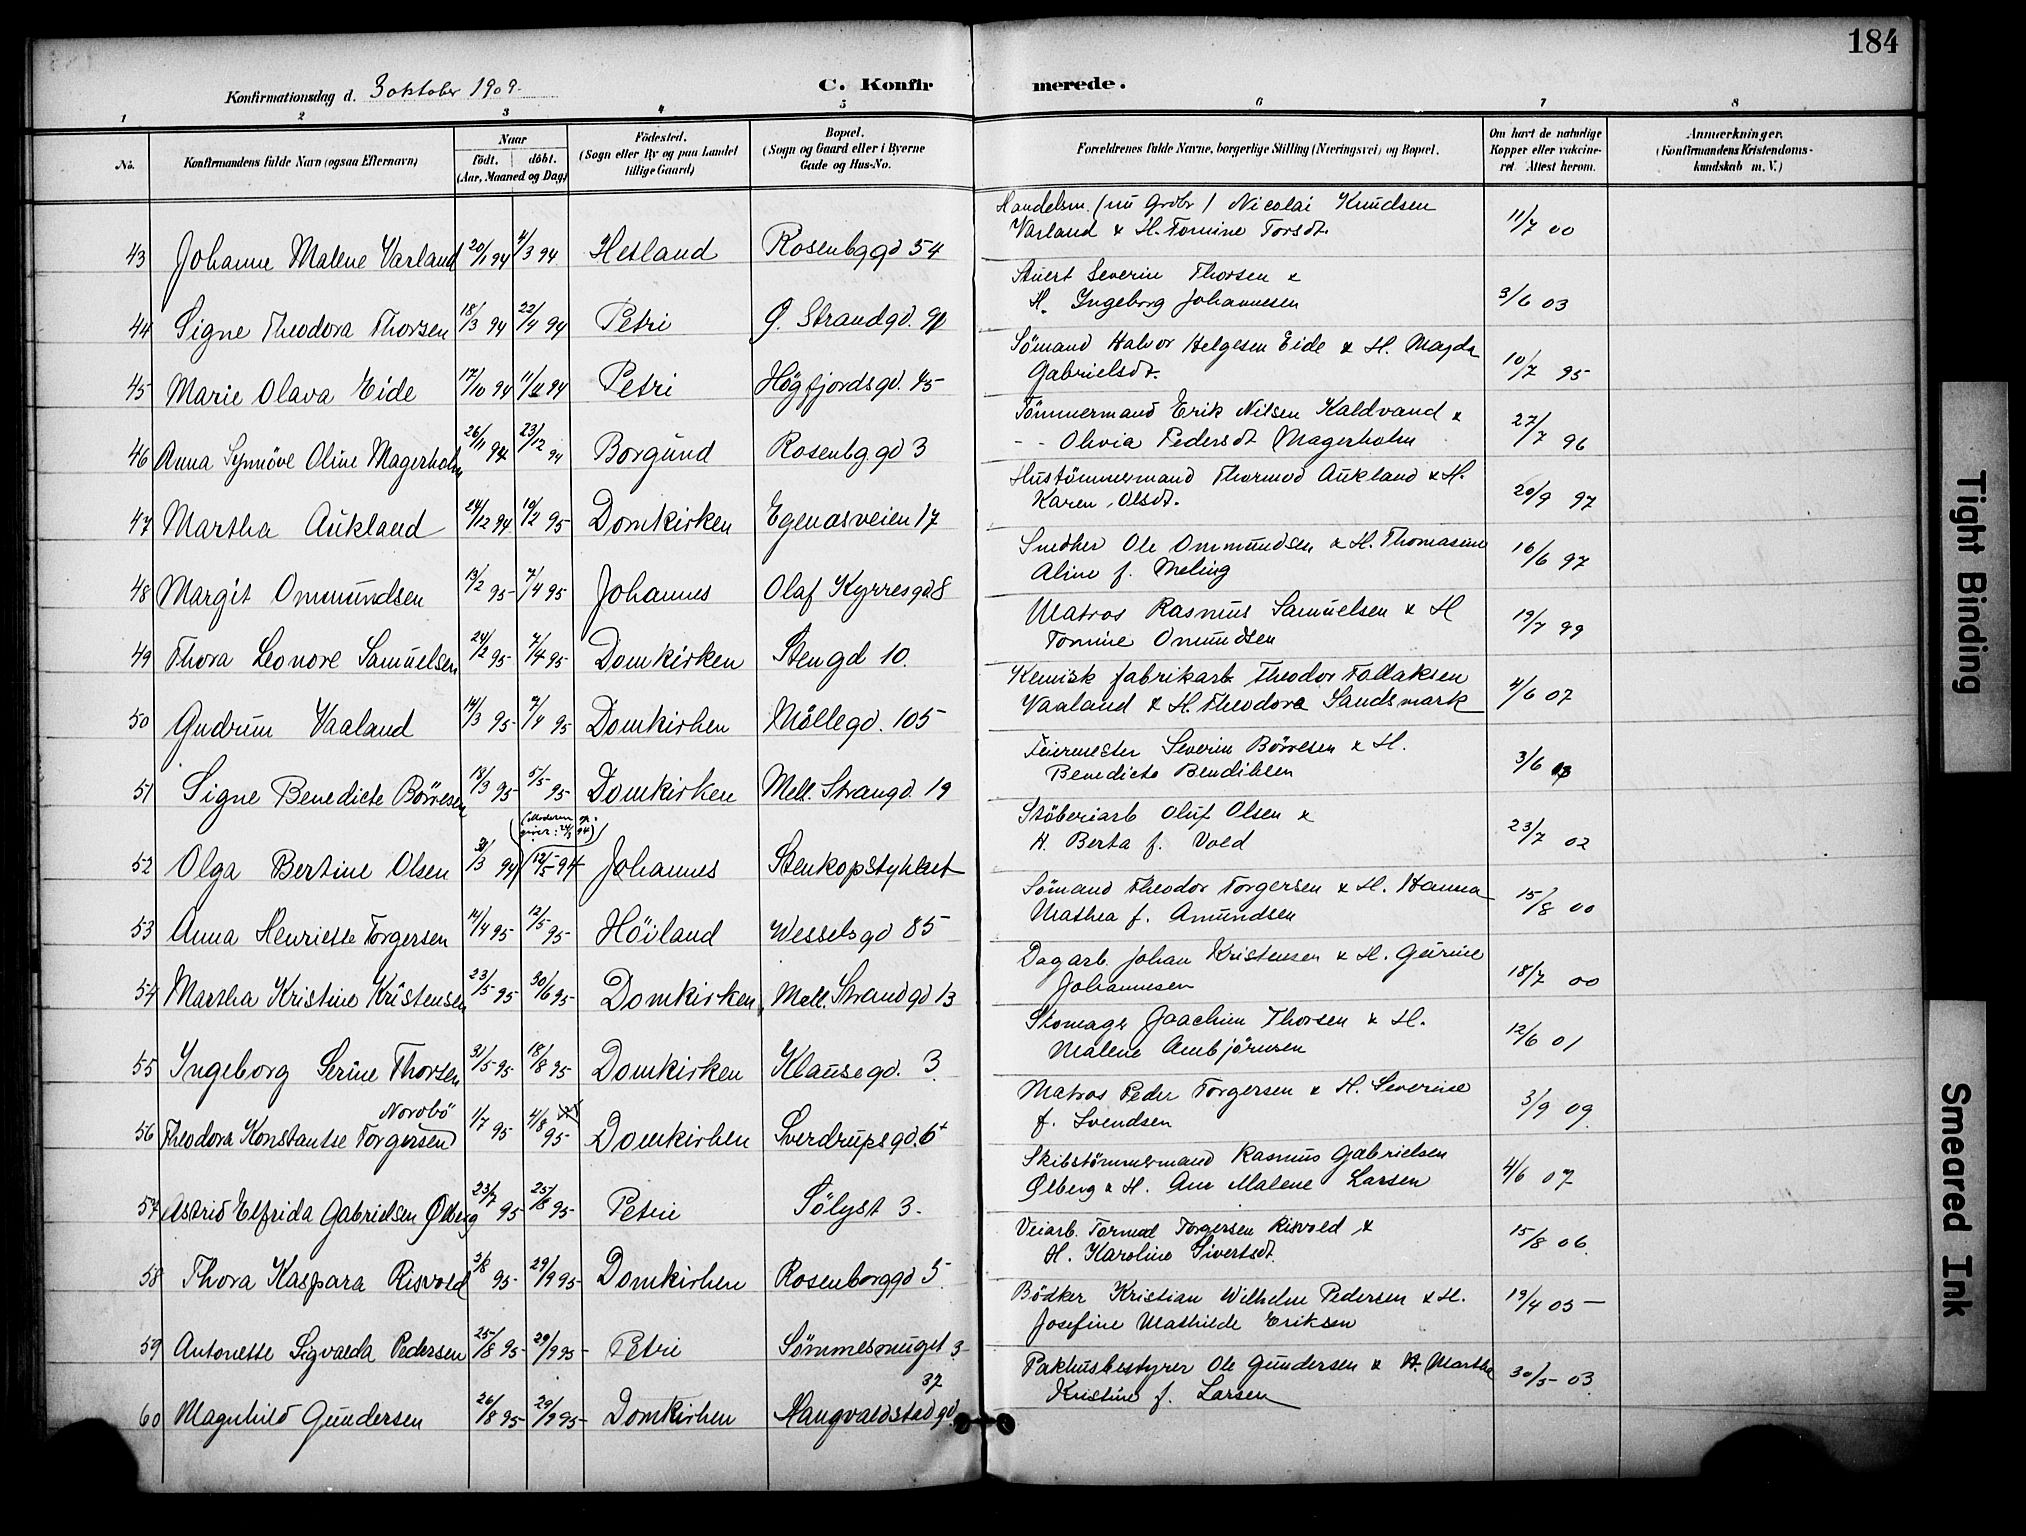 184
Konfirmationsdag d. 3 oktober 1909.
C. Konfirmerede.
1 2 3 4 5 6 7 8
No.
Konfirmandens fulde Navn (ogsaa Efternavn)
Naar
født. døbt.
(Aar, Maaned og Dag)
Fødested.
(Sogn eller By og paa Landet
tillige Gaard)
Bopæl.
(Sogn og Gaard eller i Byerne
Gade og Hus-No.
Forældrenes fulde Navne, borgerlige Stilling (Næringsvei) og Bopæl.
Om havt de naturlige
Kopper eller vakcine-
ret. Attest herom.
Anmærkninger.
(Konfirmandens Kristendoms-
kundskab m. V.)
43 Johanne Malene Varland 20/1 94 4/3 94 Hetland Rosenbg gd 54
Handelsm. (nu Grdbr) Nicolai Knudsen
Varland & H. Tomine Torsdt. 11/7 00
44 Signe Theodora Thorsen 18/3 94 22/4 94 Petri Ø. Strandgd. 90
Stuert Severin Thorsen &
H. Ingeborg Johannesen 3/6 03
45 Marie Olava Eide 17/10 94 11/11 94 Petri Høgfjordsgd. 45
Sömand Halvor Helgesen Eide & H. Magda
Gabrielsdt. 10/7 95
46 Anna Synnöve Oline Magerholm 26/11 94 23/12 94 Borgund Rosenbg gd 3
Tömmermand Erik Nilsen Kaldvand &
- - Olivia Pedersdt Magerholm 27/7 96
47 Martha Aukland 24/12 94 10/2 95 Domkirken Egenæsveien 17
Hustömmermand Thormod Aukland & H.
Karen Olsdt. 20/9 97
48 Margit Ommundsen 13/2 95 7/4 95 Johannes Olaf Kyrresgd 8
Smedher Ole Ommundsen & H. Thomasine
Aline f. Meling 16/6 97
49 Thora Leonore Samuelsen 24/2 95 7/4 95 Domkirken Stengd 10.
Matros Rasmus Samuelsen & H
Tomine Omundsen 19/7 99
50 Gudrun Vaaland 14/3 95 7/4 95 Domkirken Möllegd. 105
Kemisk fabrikarb Theodor Tollaksen
Vaaland & H. Theodora Sandsmark 4/6 07
51 Signe Benedicte Börresen 18/3 95 5/5 95 Domkirken Mell. Strangd. 19
Feiermester Severin Börresen & H.
Benedicte Bendiksen 3/6 03
(Moderen op-
giver: 24/3 94)
52 Olga Bertine Olsen 31/3 94 (12/5 94 Johannes Stenkopstykket
Stöberiarb Oluf Olsen &
H. Berta f. Vold 23/7 02
53 Anna Henriette Torgersen 14/4 95 12/5 95 Höiland Wesselsgd 85
Sömand Theodor Torgersen & H. Hanna
Mathea f. Amundsen 15/8 00
54 Martha Kristine Kristensen 23/5 95 30/6 95 Domkirken Mell. Strandgd 13
Dagarb. Johan Kristensen & H. Gurine
Johannesen 18/7 00
55 Ingeborg Serine Thorsen 31/5 95 18/8 95 Domkirken Klausegd. 3.
Skomager Joachim Thorsen & H.
Malene Arnbjörnsen 12/6 01
Norobö
56 Theodora Konstantse Torgersen 1/7 95 4/8 95 Domkirken Sverdrupsgd. 6
Matros Peder Torgersen & H. Severine
f. Svendsen 3/9 09.
57 Astrid Elfrida Gabrielsen Ølberg 23/7 95 25/8 95 Petri Sölyst 3.
Skibstömmermand Rasmus Gabrielsen
Ølberg & H. Ane Malene Larsen 4/6 07
58 Thora Kaspara Risvold 3/8 95 29/9 95 Domkirken Rosenborggd 5
Veiarb. Tormod Torgersen Risvold &
H. Karoline Sivertsdt. 15/8 06.
59 Antonette Sigvalda Pedersen 25/8 95 29/9 95 Petri Sømmesmuget 3
Bödker Kristian Wilhelm Pedersen & H.
Josefine Mathilde Eriksen 19/4 05
37
60 Magnhild Gundersen 26/8 95 29/9 95 Domkirken Haugvaldstadgd.
Pakhusbestyrer Ole Gundersen & H. Martha
Kristine f. Larsen 30/5 03.
Tight Binding
Smeared Ink